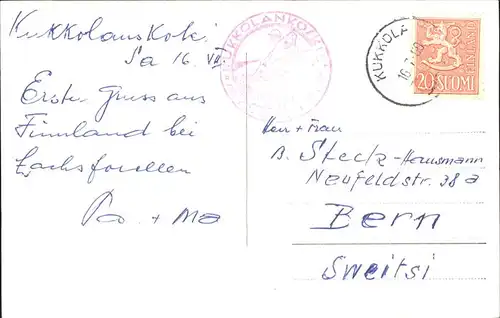 Kukkolankoski
Sa 16. VII
Erster Gruss aus
Finnland bei
Lachsforellen
Pa + Ma
KUKKOLANKOSKI
KUKKOLA
16.7.60
20 SUOMI
Herr + Frau
B. Steck-Hausmann
Neufeldstr. 38 a
Bern
Sweitsi